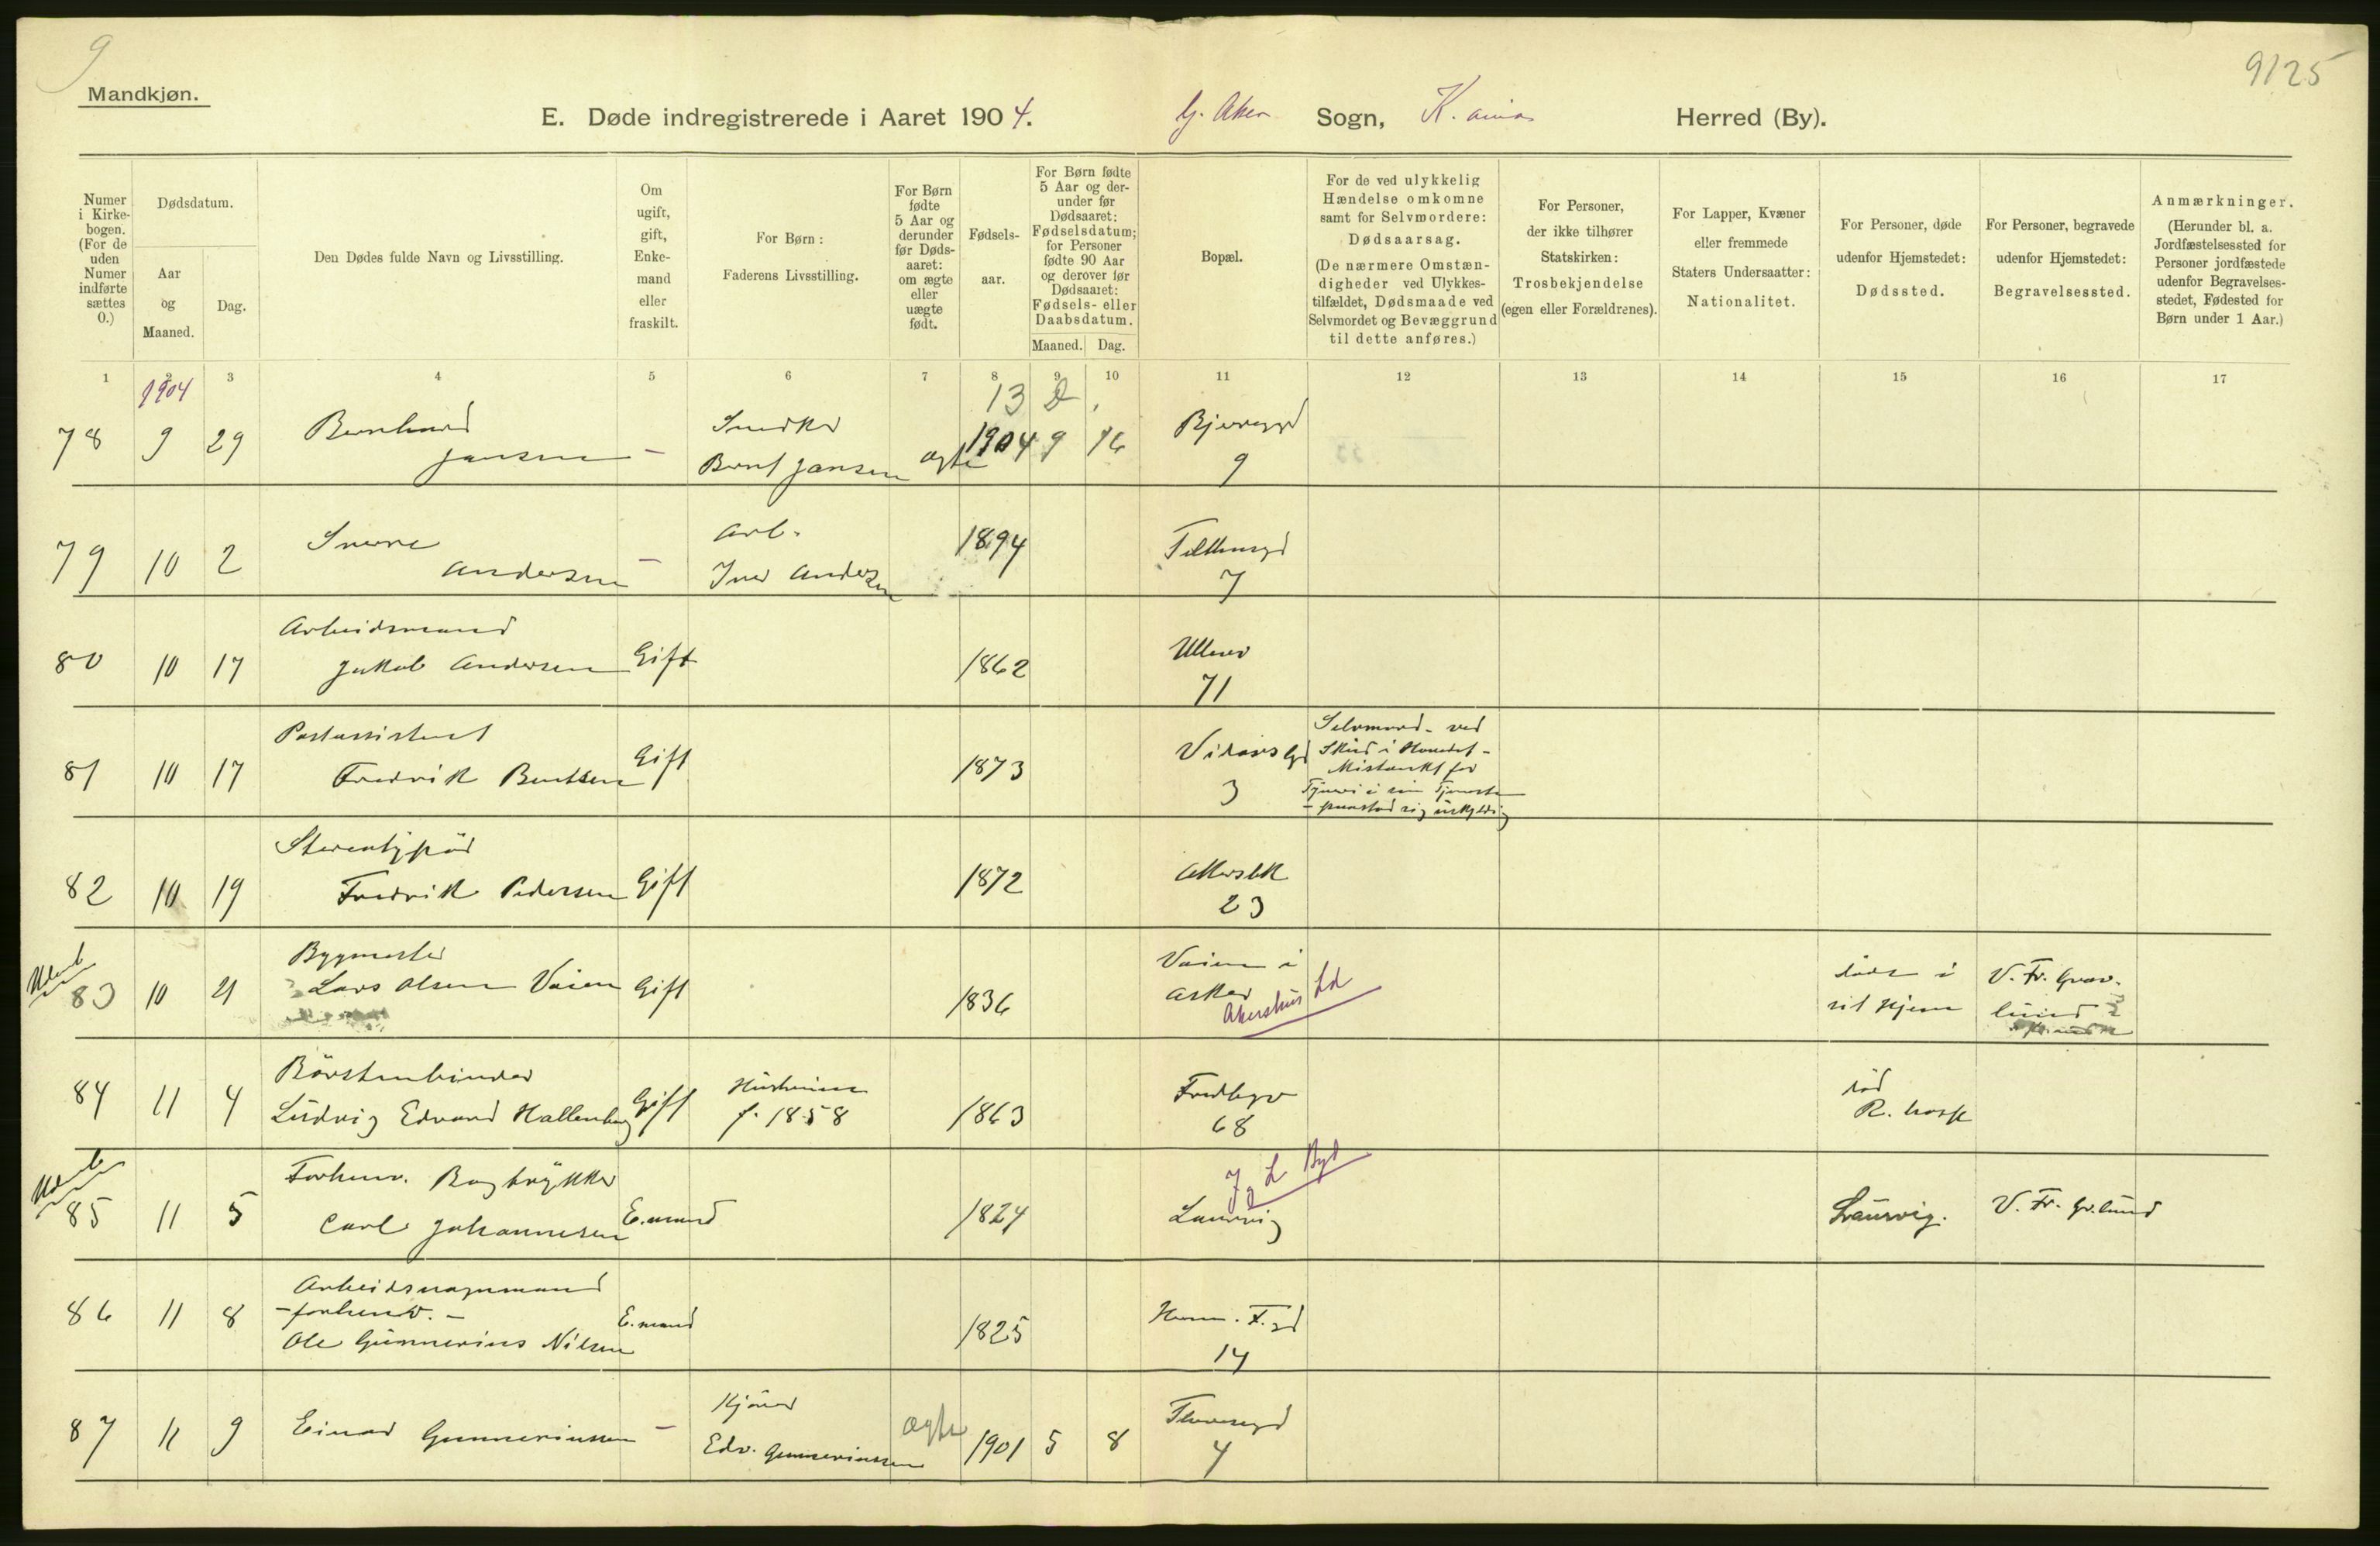 9
9125
Mandkjøn.
E. Døde indregistrerede i Aaret 1904. G. Aker Sogn, K.ania Herred (By).
Numer i Kirkebogen. (For de uden Numer indførte sættes 0.)
Dødsdatum.
Aar og Maaned.
Dag.
Den Dødes fulde Navn og Livsstilling.
Om ugift, gift, Enkemand eller fraskilt.
For Børn:
Faderens Livsstilling.
For Børn fødte 5 Aar og derunder før Dødsaaret: om ægte eller uægte født.
Fødselsaar.
For Børn fødte 5 Aar og derunder før Dødsaaret: Fødselsdatum; for Personer fødte 90 Aar og derover før Dødsaaret: Fødsels- eller Daabsdatum.
Maaned. Dag.
Bopæl.
For de ved ulykkelig Hændelse omkomne samt for Selvmordere: Dødsaarsag.
(De nærmere Omstændigheder ved Ulykkestilfældet, Dødsmaade ved Selvmordet og Bevæggrund til dette anføres.)
For Personer, der ikke tilhører Statskirken: Trosbekjendelse (egen eller Forældrenes).
For Lapper, Kvæner eller fremmede Staters Undersaatter: Nationalitet.
For Personer, døde udenfor Hjemstedet: Dødssted.
For Personer, begravede udenfor Hjemstedet: Begravelsessted.
Anmærkninger.
(Herunder bl. a. Jordfæstelsessted for Personer jordfæstede udenfor Begravelsesstedet, Fødested for Børn under 1 Aar.)
1 2 3 4 5 6 7 8 9 10 11 12 13 14 15 16 17
1904
13 D.
78 9 29 Bernhard Jansen - Snedker Bernt Jansen ægte 1904 9 16 Bjerregd 9
79 10 2 Sverre Andersen - Arb. Iver Andersen 1894 Telthusgd 7
80 10 17 Arbeidsmand Jakob Andersen Gift 1862 Ullever 71
81 10 17 Postassistent Fredrik Berntsen Gift 1873 Vidars gd 3 Selvmord - ved
Skud i Hovedet -
Mistænkt for
Tyveri i sin Tjeneste
- paastod sig uskyldig
82 10 19 Stereotypør Fredrik Pedersen Gift 1872 Akersbk 23
83 10 21 Bygmester Lars Olsen Vøien Gift 1836 Vøien i Asker Akershus Ld døde i sit Hjem V. Fr. Gravlund
84 11 4 Börstenbinder Ludvig Edvard Hallenberg Gift Hustruen f. 1858 1863 Fredbgv 68 død R. hosp
85 11 5 Forhenv. Bogtrykker Carl Johannesen E.mand 1824 Laurvig J. L Byd Laurvig. V. Fr. Gr.lund
86 11 8 Arbeidsvognmand
- forhenv. -
Ole Gunnerius Nilsen E.mand 1825 Herm. F. gd 14
87 11 9 Einar Gunneriussen - Kjører Edv. Gunneriussen ægte 1901 5 8 Thoresgd 4